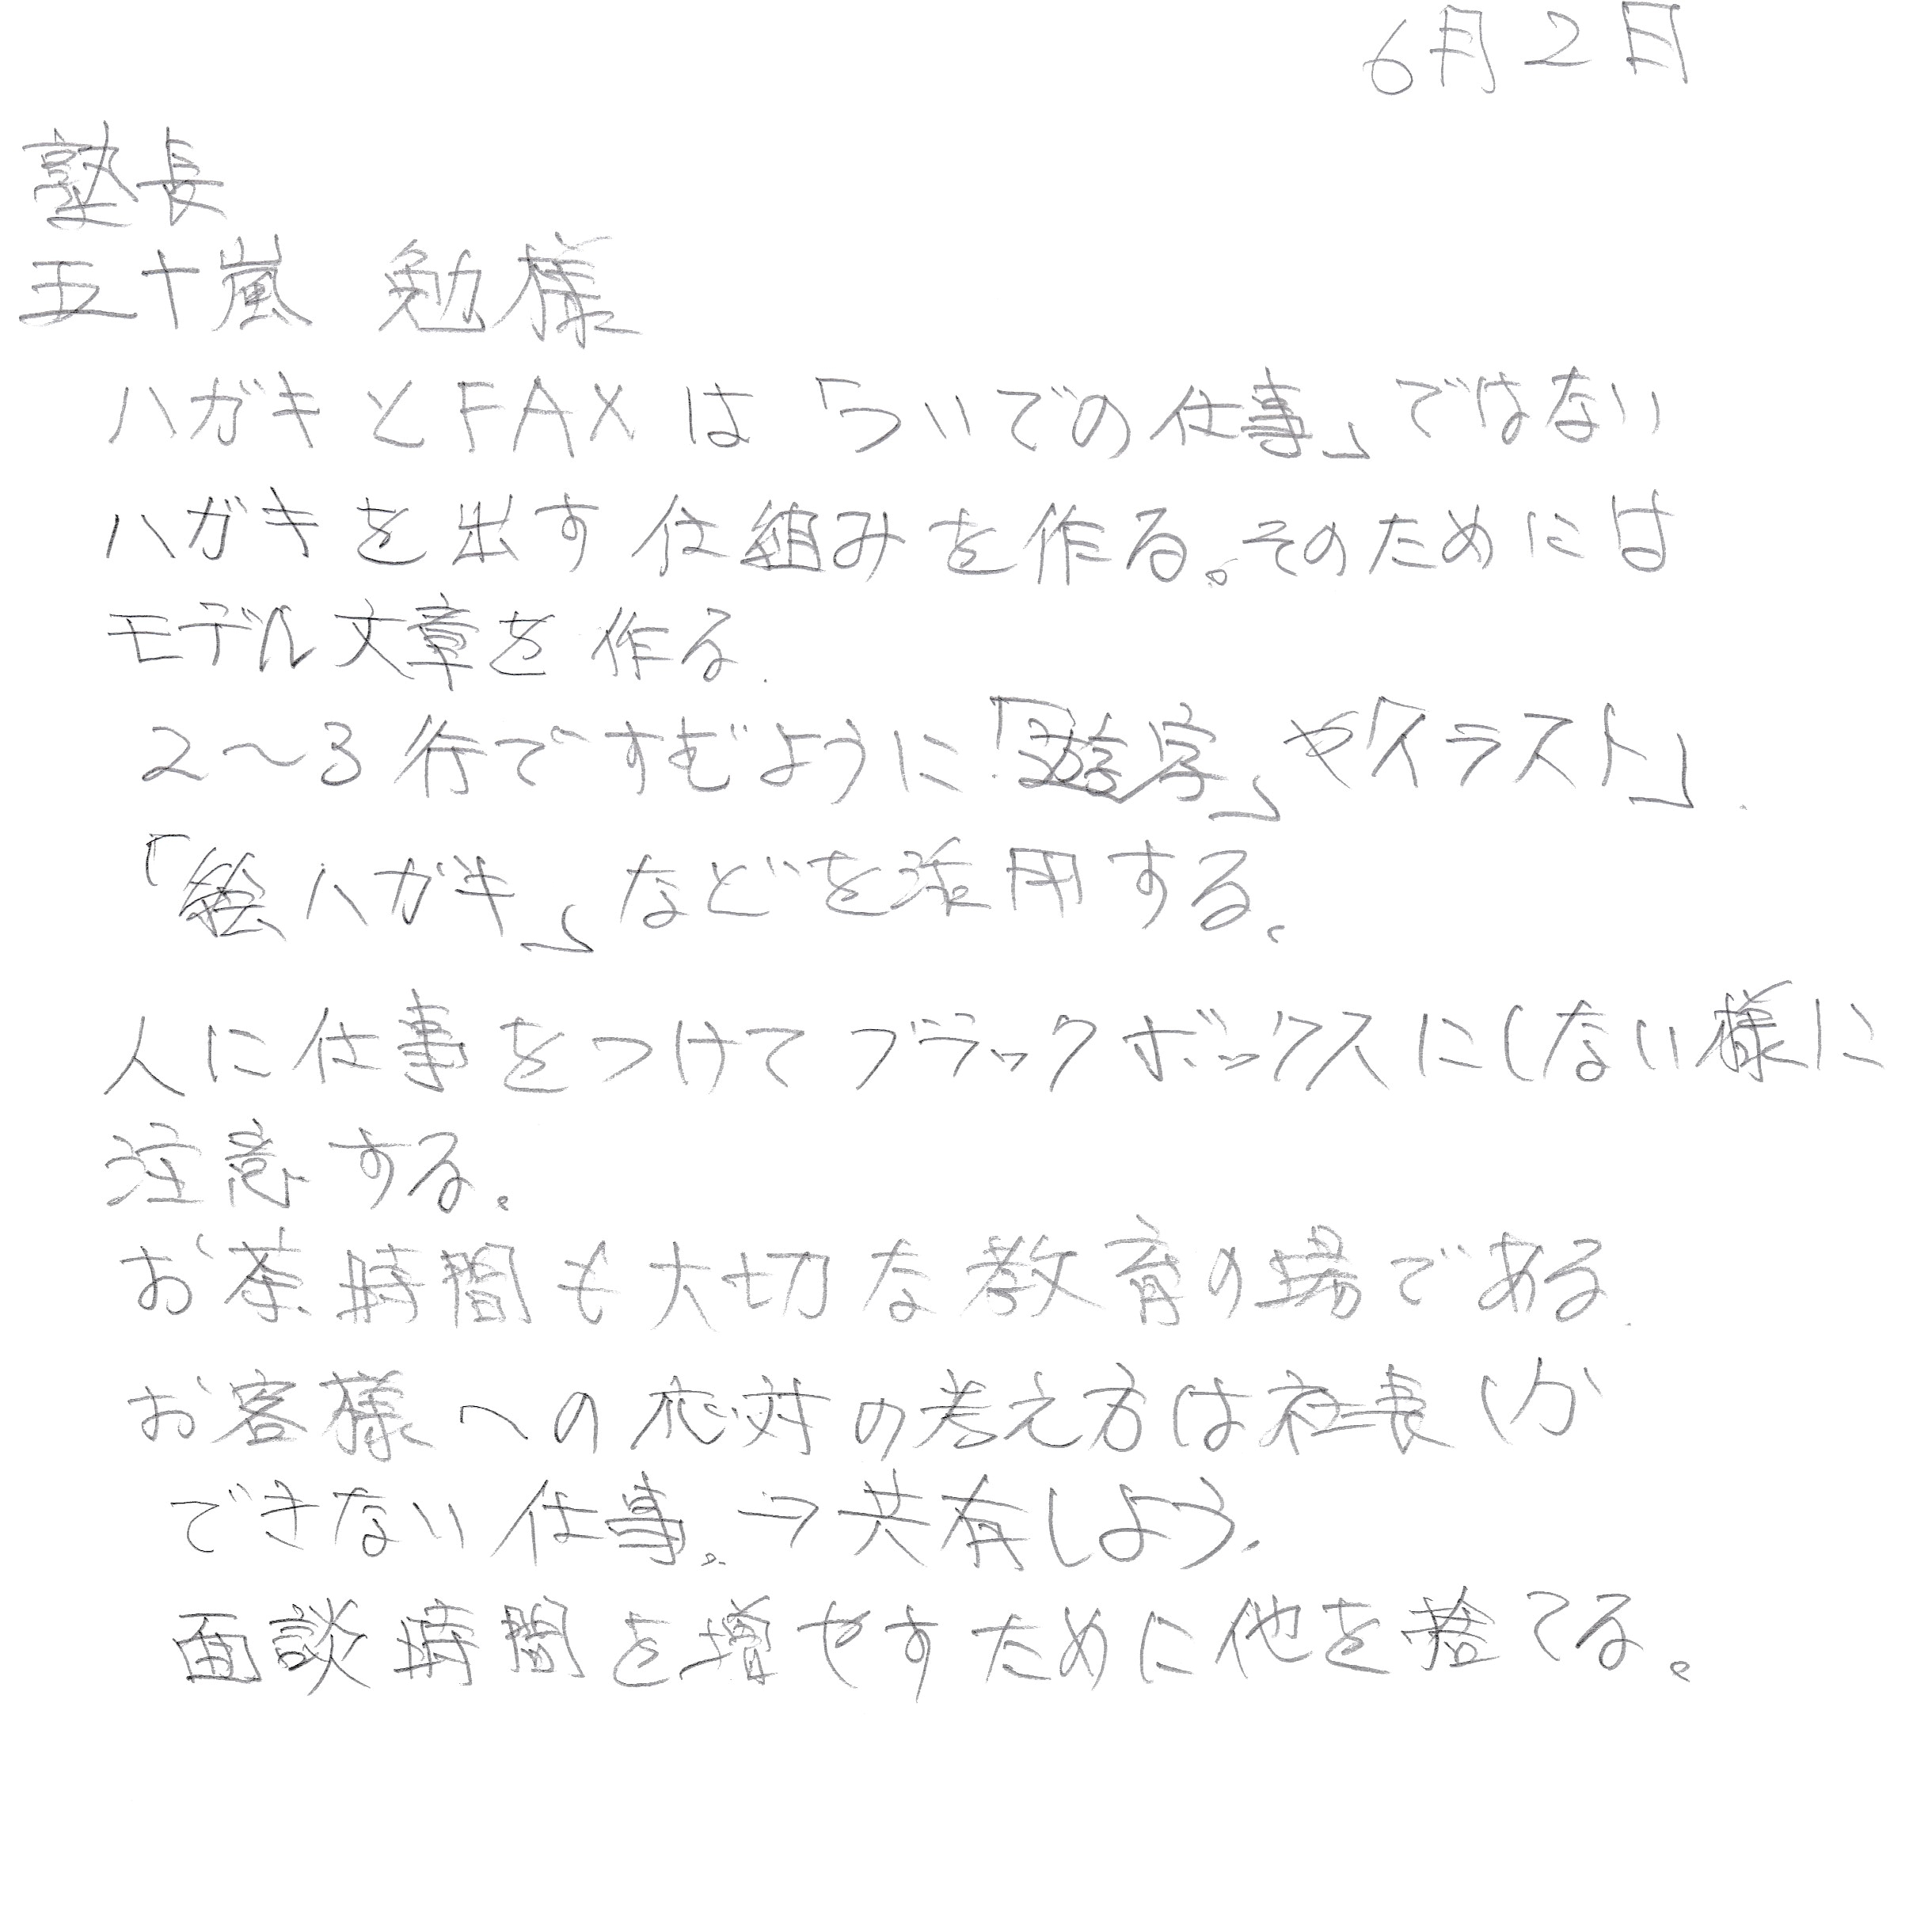 6月2日
塾長
五十嵐 勉様
ハガキとFAXは「ついでの仕事」ではない
ハガキを出す仕組みを作る。そのためには
モデル文章を作る.
2〜3行ですむように「遊字」や「イラスト」.
「絵ハガキ」などを活用する。
人に仕事をつけてブラックボックスにしない様に
注意する。
お茶時間も大切な教育の場である.
お客様への応対の考え方は社長しか
できない仕事。→共有しよう.
面談時間を増やすために他を捨てる。